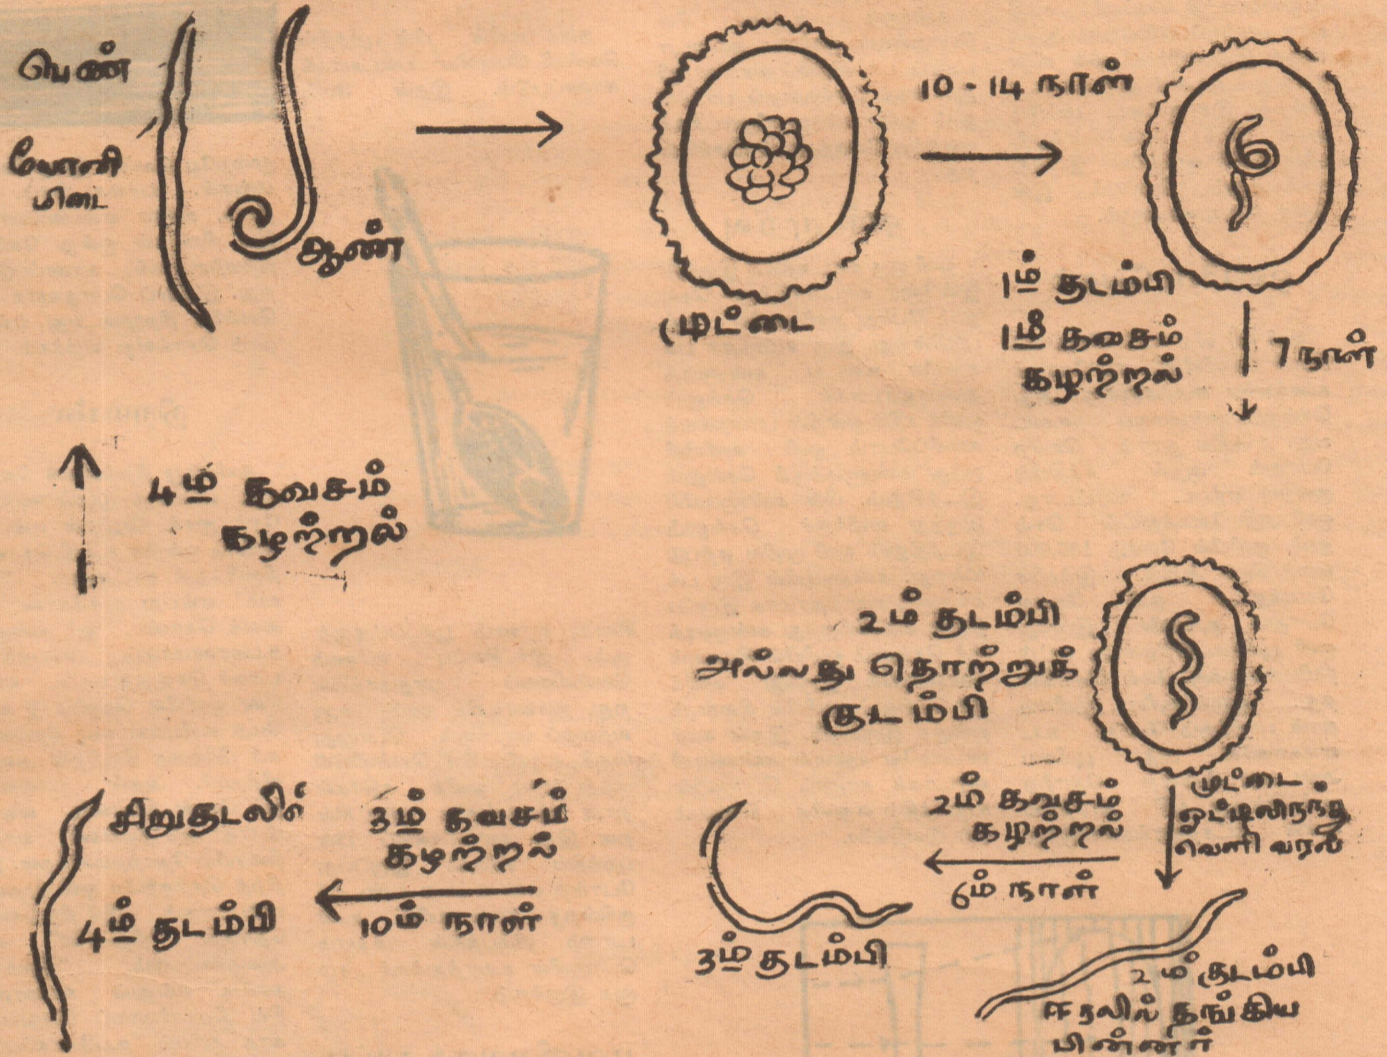 பெண்
யோனி
மிடை
ஆண்
முட்டை
10 - 14 நாள்
1ம் குடம்பி
1ம் கவசம்
கழற்றல்
7 நாள்
2ம் குடம்பி
அல்லது தொற்றுக்
குடம்பி
முட்டை
ஓட்டிலிருந்து
வெளி வரல்
2ம் குடம்பி
ஈரலில் தங்கிய
பின்னர்
2ம் கவசம்
கழற்றல்
6ம் நாள்
3ம் குடம்பி
3ம் கவசம்
கழற்றல்
10ம் நாள்
சிறுகுடலில்
4ம் குடம்பி
4ம் கவசம்
கழற்றல்